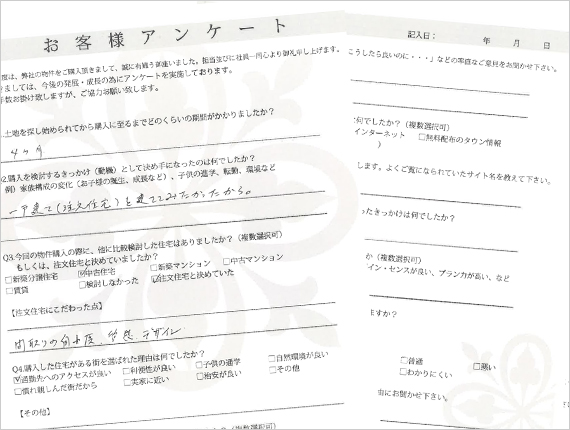 お客様アンケート
度は、弊社の物件をご購入頂きまして、誠に有難う御座いました。担当並びに社員一同心より御礼申し上げます。
きましては、今後の発展・成長の為にアンケートを実施しております。
手数お掛け致しますが、ご協力お願い致します。
土地を探し始められてから購入に至るまでどのくらいの期間がかかりましたか？
4ヶ月
2.購入を検討するきっかけ（動機）として決め手になったのは何でしたか？
例）家族構成の変化（お子様の誕生、成長など）、子供の進学、転勤、環境など
一戸建て(注文住宅)を建ててみたかったから。
Q3.今回の物件購入の際に、他に比較検討した住宅はありましたか？（複数選択可）
もしくは、注文住宅と決めていましたか？
□新築分譲住宅 ☑中古住宅 □新築マンション □中古マンション
□賃貸 □検討しなかった ☑注文住宅と決めていた
【注文住宅にこだわった点】
間取りの自由度、デザイン
Q4.購入した住宅がある街を選ばれた理由は何でしたか？
☑通勤先へのアクセスが良い □利便性が良い □子供の進学 □自然環境が良い
□慣れ親しんだ街だから □実家に近い □治安が良い □その他
【その他】
（複数選択可）
記入日： 年 月 日
こうしたら良いのに・・・」などの率直なご意見をお聞かせ下さい。
何でしたか？（複数選択可）
インターネット □無料配布のタウン情報
）
します。よくご覧になられていたサイト名を教えて下さい。
ったきっかけは何でしたか？
か（複数選択可）
イン・センスが良い、プラン力が高い、など
ますか？
□普通 □悪い
□わかりにくい
由にお聞かせ下さい。